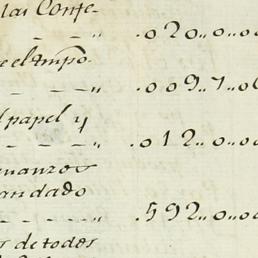 las Confe-
- - „ .020„0„00
e el impo.
- - - „ .009„7„0
l papel y
- - - „ .012„0„00
manzos
andado
- - - - „ .592„0„00
s de todes